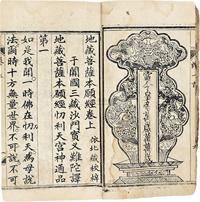 地藏菩薩本願經卷上 依北藏校梓
于闐國三藏沙門實叉難陀譯
地藏菩薩本願經忉利天宮神通品
第一
如是我聞一時佛在忉利天為母說
法爾時十方無量世界不可說不可